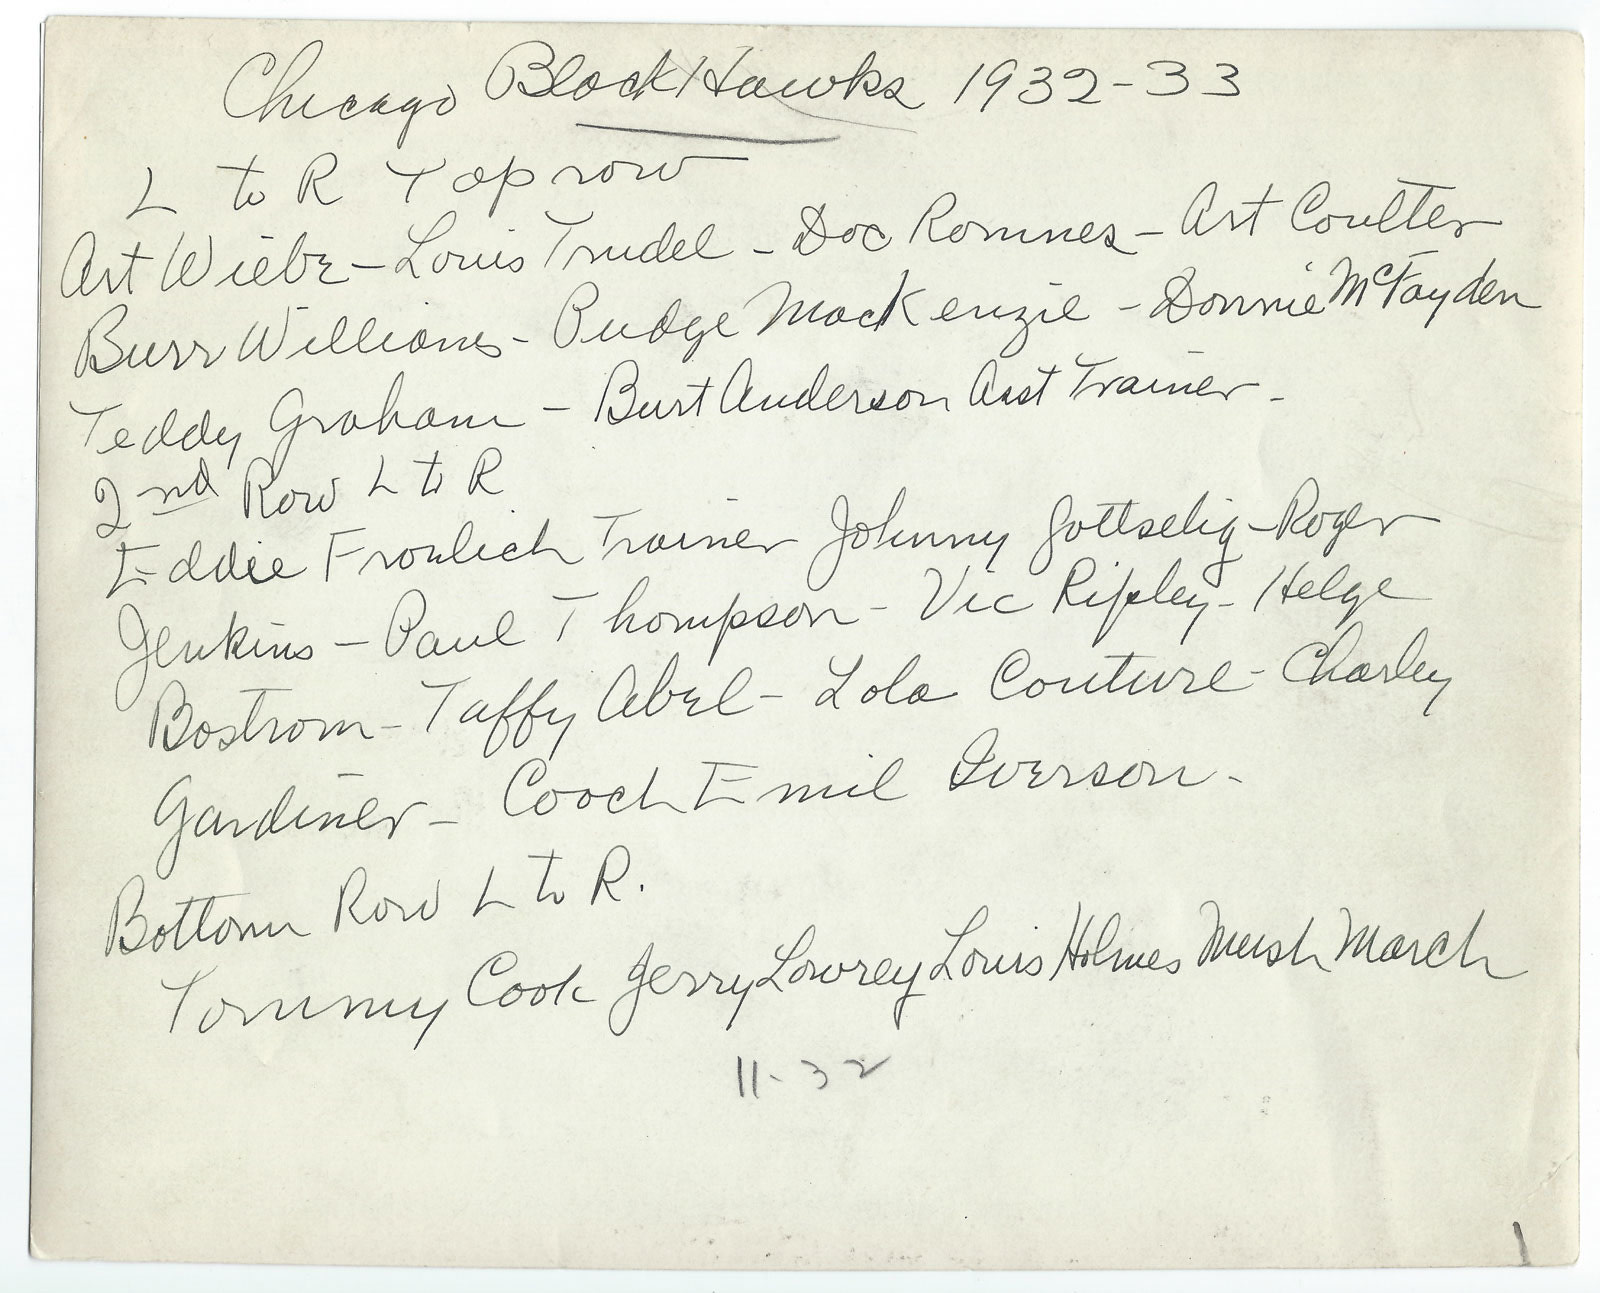 Chicago BlackHawks 1932-33
L to R Top row
Art Wiebe - Louis Trudel - Doc Romnes - Art Coulter
Burr Williams - Pudge MacKenzie - Donnie McFayden
Teddy Graham - Burt Anderson Asst Trainer -
2nd Row L to R
Eddie Froelich Trainer Johnny Gottselig - Roger
Jenkins - Paul Thompson - Vic Ripley - Helge
Bostrom - Taffy Abel - Lolo Couture - Charley
Gardiner - Coach Emil Iverson -
Bottom Row L to R.
Tommy Cook Jerry Lowrey Louis Holmes Mush March
11-32